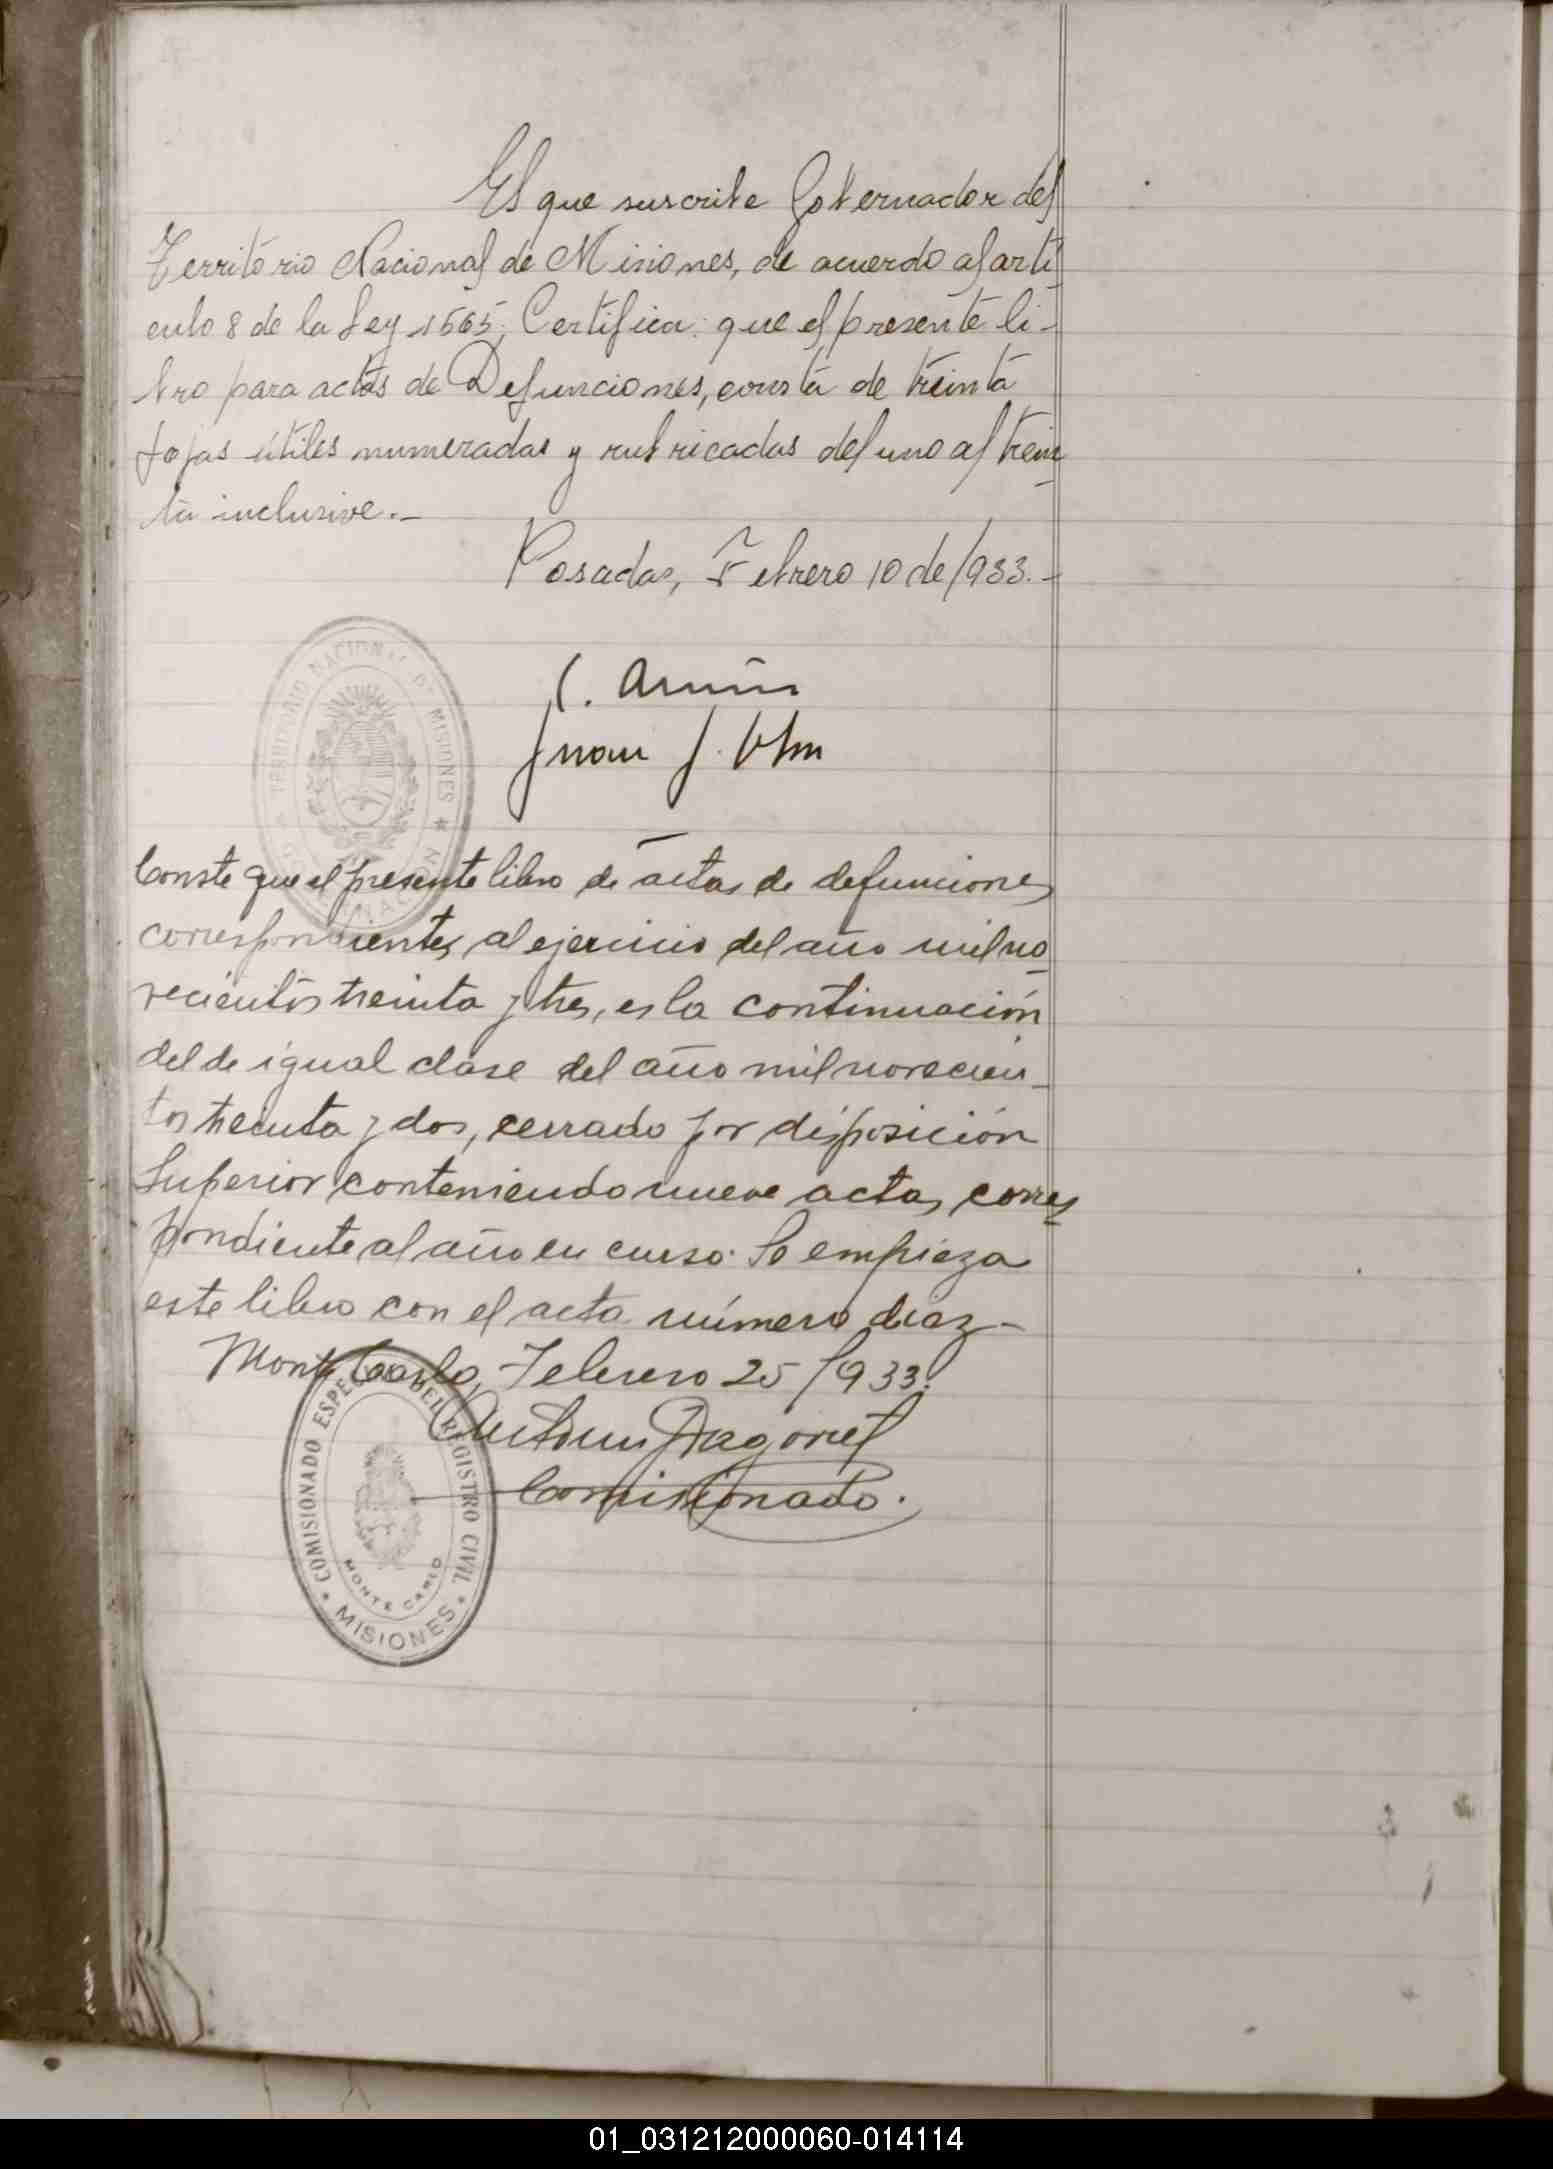 El que suscribe Gobernador del
Territorio Nacional de Misiones, de acuerdo al arti
culo 8 de la Ley 1565, Certifica: que el presente li-
bro para actas de Defunciones, consta de treinta
fojas útiles numeradas y rubricadas del uno al trein
ta inclusive.-
Posadas, Febrero 10 de 1933.-
TERRITORIO NACIONAL DE MISIONES
GOBERNACION
Juan J.
Conste que el presente libro de actas de defunciones
correspondientes al ejercicio del año mil no
vecientos treinta y tres, es la continuación
del de igual clase del año mil novecien-
tos treinta y dos, cerrado por disposición
Superior conteniendo nueve actas corres
pondiente al año en curso. Se empieza
este libro con el acta número diez-
Monte Carlo, Febrero 25/933.
Comisionado.
COMISIONADO ESPECIAL DEL REGISTRO CIVIL
MONTE CARLO
* MISIONES *
01_031212000060-014114